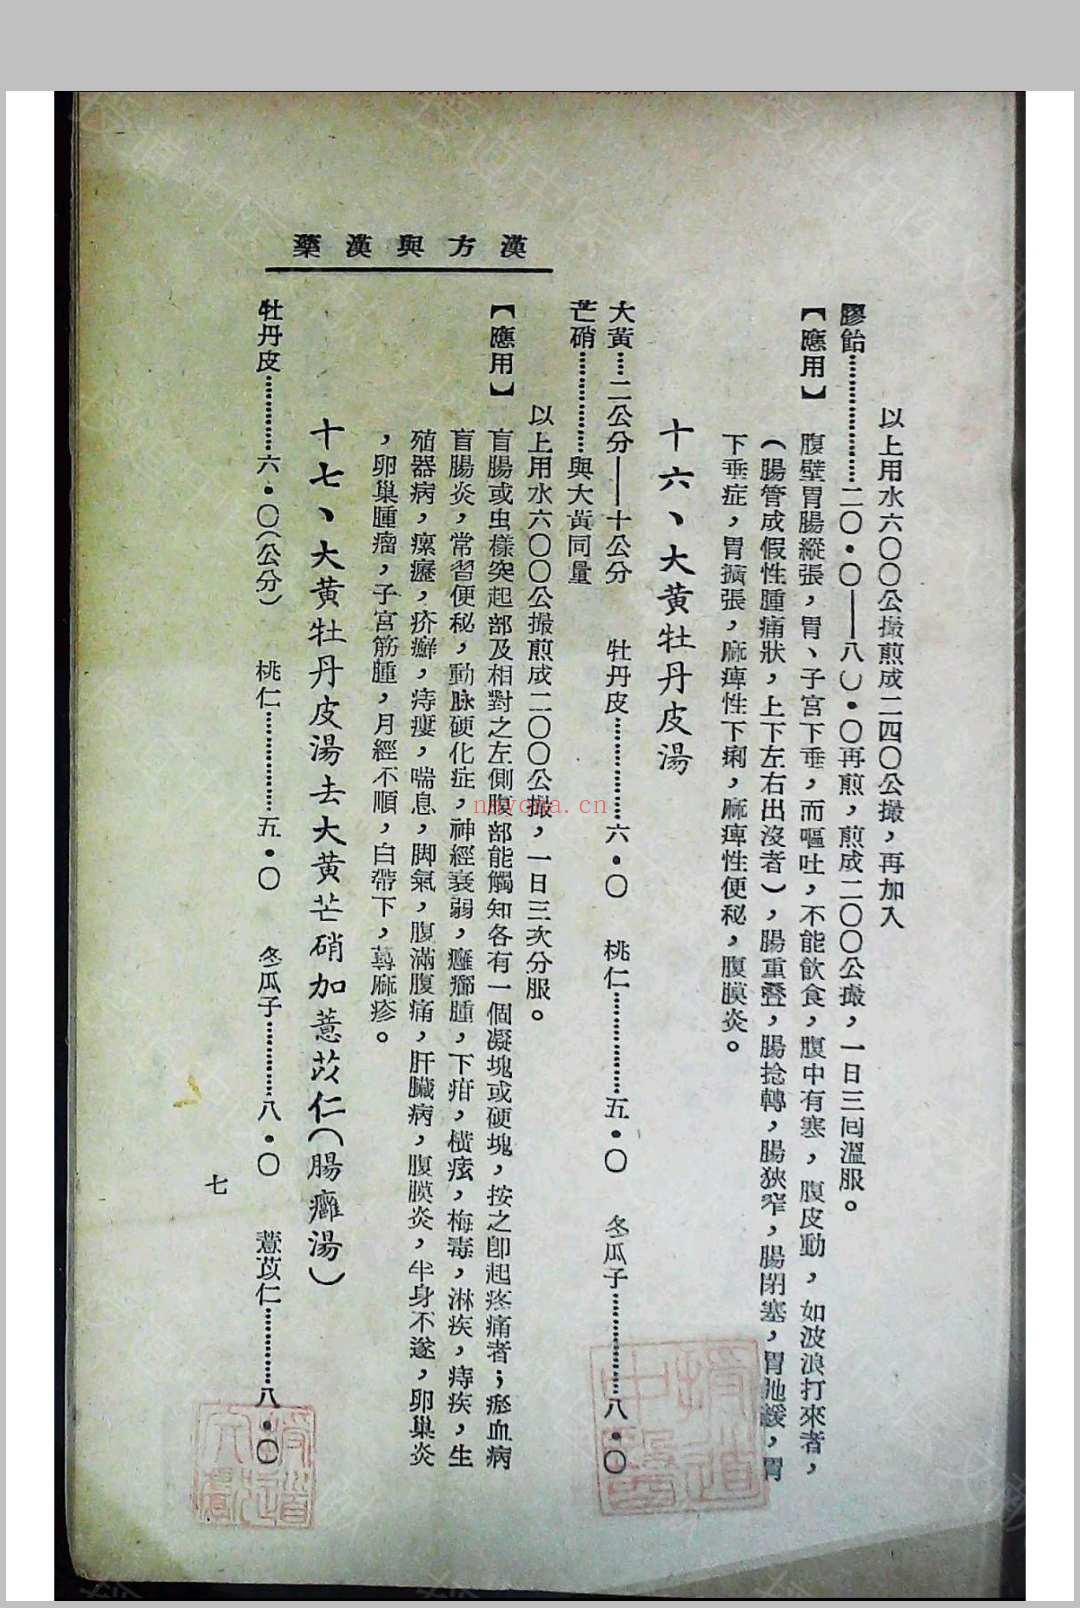 漢方與漢藥
以上用水六〇〇公撮煎成二四〇公撮，再加入
膠飴………………二〇・〇——八〇・〇再煎，煎成二〇〇公撮，一日三回溫服。
【應用】　腹壁胃腸縱張，胃、子宮下垂，而嘔吐，不能飲食，腹中有塞，腹皮動，如波浪打來者，
（腸管成假性腫痛狀，上下左右出沒者），腸重疊，腸捻轉，腸狹窄，腸閉塞，胃弛緩，胃
下垂症，胃擴張，麻痺性下痢，麻痺性便秘，腹膜炎。
十六、大黃牡丹皮湯
大黃……二公分——十公分　牡丹皮………………六・〇　桃仁………………五・〇　冬瓜子………………八・〇
芒硝………………與大黃同量
以上用水六〇〇公撮煎成二〇〇公撮，一日三次分服。
【應用】　盲腸或虫樣突起部及相對之左側腹部能觸知各有一個凝塊或硬塊，按之卽起疼痛者；瘀血病
盲腸炎，常習便秘，動脉硬化症，神經衰弱，癰癤腫，下疳，橫痃，梅毒，淋疾，痔疾，生
殖器病，瘰癧，疥癬，痔瘻，喘息，脚氣，腹滿腹痛，肝臟病，腹膜炎，半身不遂，卵巢炎
，卵巢腫瘤，子宮筋腫，月經不順，白帶下，蕁麻疹。
十七、大黃牡丹皮湯去大黃芒硝加薏苡仁（腸癰湯）
牡丹皮…………六・〇（公分）　桃仁………………五・〇　冬瓜子…………八・〇　薏苡仁…………八・〇
七